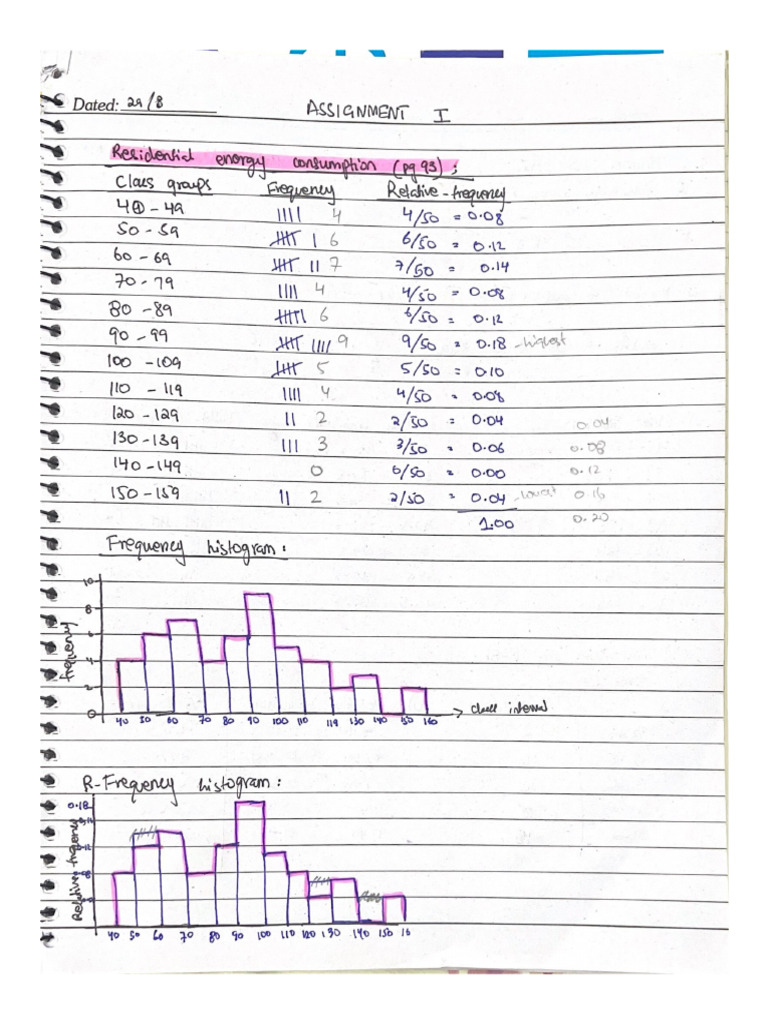 Dated: 29/8
ASSIGNMENT I
Residential energy consumption (pg 93) :
Class groups Frequency Relative-frequency
40 - 49 |||| 4 4/50 = 0.08
50 - 59 𝍸 | 6 6/50 = 0.12
60 - 69 𝍸 || 7 7/50 = 0.14
70 - 79 |||| 4 4/50 = 0.08
80 - 89 𝍸 | 6 6/50 = 0.12
90 - 99 𝍸 |||| 9 9/50 = 0.18 - highest
100 - 109 𝍸 5 5/50 = 0.10
110 - 119 |||| 4 4/50 = 0.08
120 - 129 || 2 2/50 = 0.04 0.04
130 - 139 ||| 3 3/50 = 0.06 0.08
140 - 149 0 0/50 = 0.00 0.12
150 - 159 || 2 2/50 = 0.04 - lowest 0.16
1.00 0.20
Frequency histogram :
10
8
6
4
2
0
frequency
40 50 60 70 80 90 100 110 119 130 140 150 160
class interval
R-Frequency histogram :
0.18
Relative-frequency
40 50 60 70 80 90 100 110 120 130 140 150 16